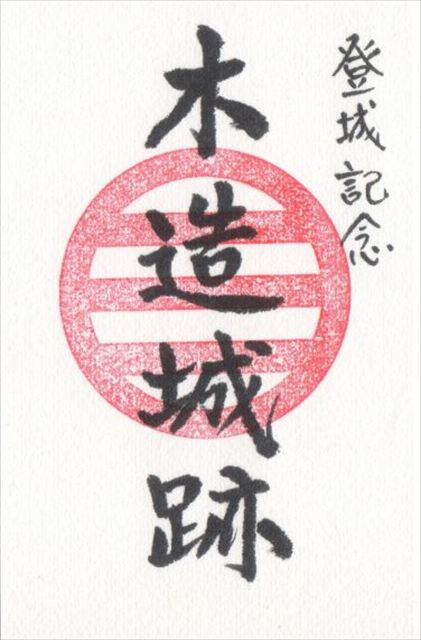 登城記念
木造城跡